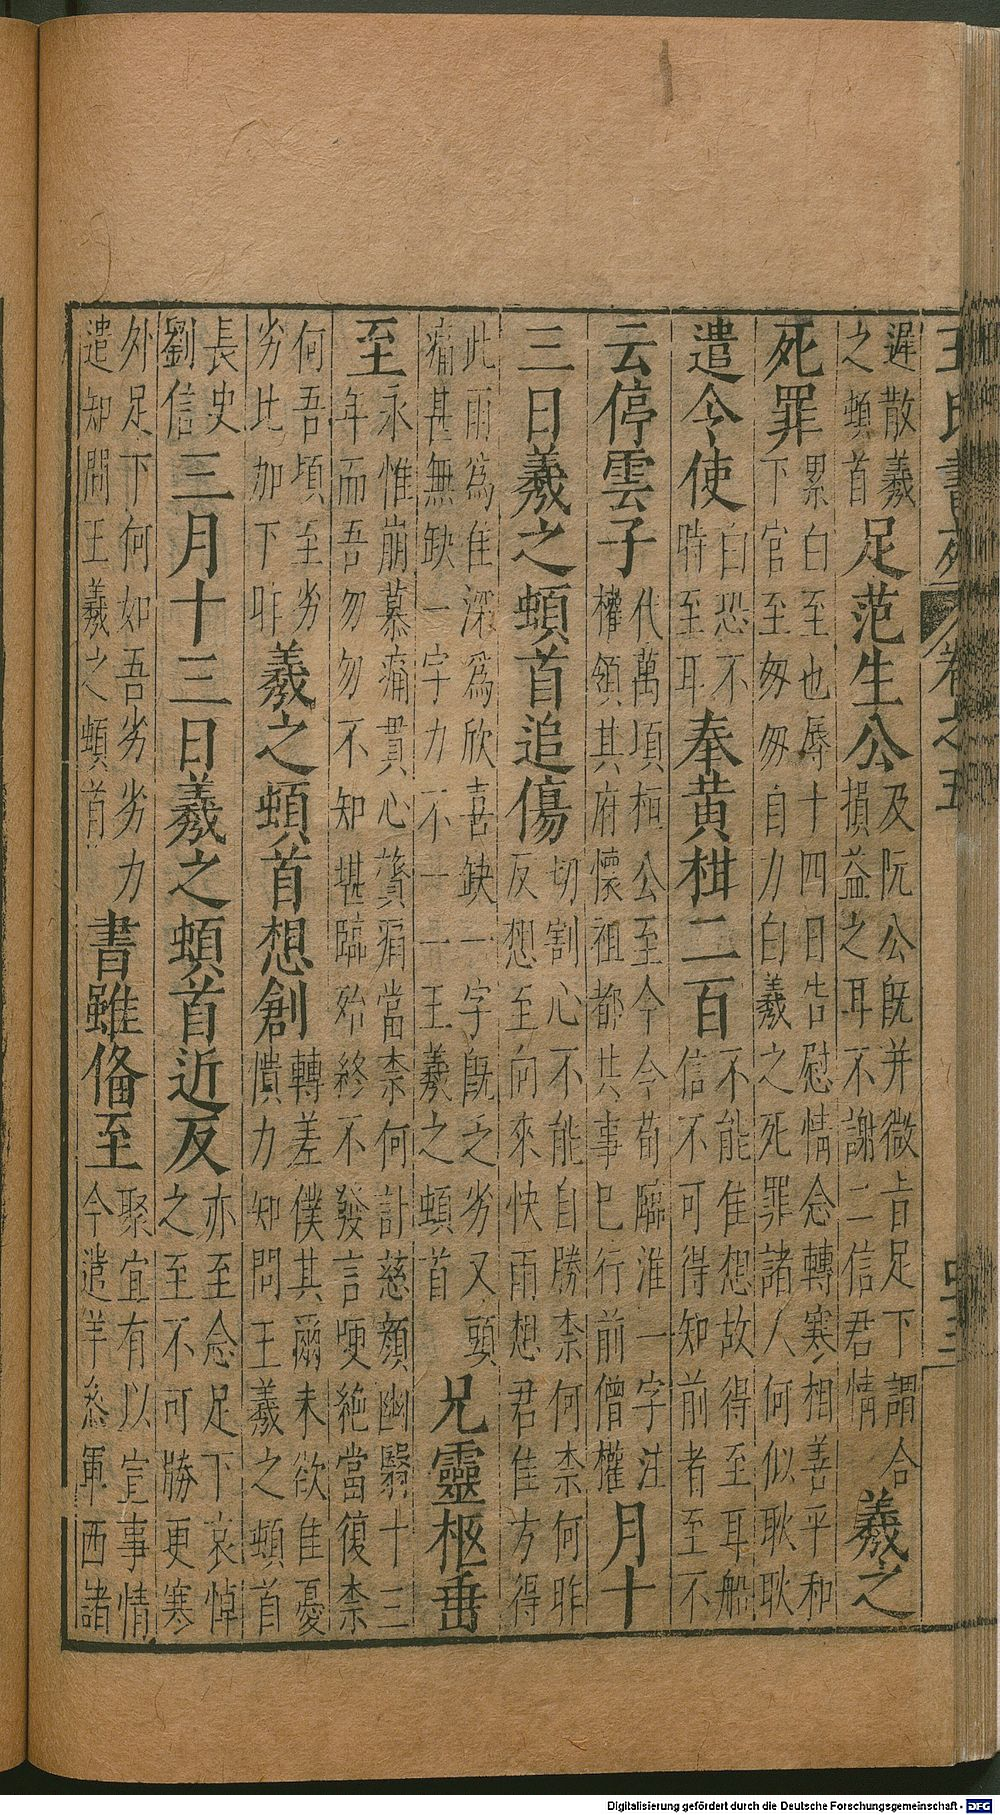 王氏書苑 卷之五 四三
遲散羲之頓首足范生公及阮公旣并微旨足下謂合損益之耳不謝二信君情羲之
死罪累白至也辱十四日告慰情念轉寒相善平和下官至匆匆自力白羲之死罪諸人何似耿耿
遣令使白恐不時至耳奉黄柑二百不能佳想故得至耳船信不可得知前者至不
云停雲子代萬頃桓公至今令荀臨淮一字注權領其府懷祖都共事已行前僧權月十
三日羲之頓首追傷切割心不能自勝柰何柰何昨反想至向來快雨想君佳方得
此雨爲佳深爲欣喜缺一字旣乏劣又頭痛甚無缺一字力不一一王羲之頓首兄靈柩垂
至永惟崩慕痛貫心膂痛當柰何計慈顔幽翳十三年而吾勿勿不知堪臨始終不發言哽絶當復柰
何吾頃至劣劣比加下昨羲之頓首想創轉差僕其爾未欲佳憂憒力知問王羲之頓首
長史劉信三月十三日羲之頓首近反亦至念足下哀悼之至不可勝更寒
外足下何如吾劣劣力遣知問王羲之頓首書雖俻至聚宜有以宣事情今遣羊叅軍西諸
Digitalisierung gefördert durch die Deutsche Forschungsgemeinschaft - DFG